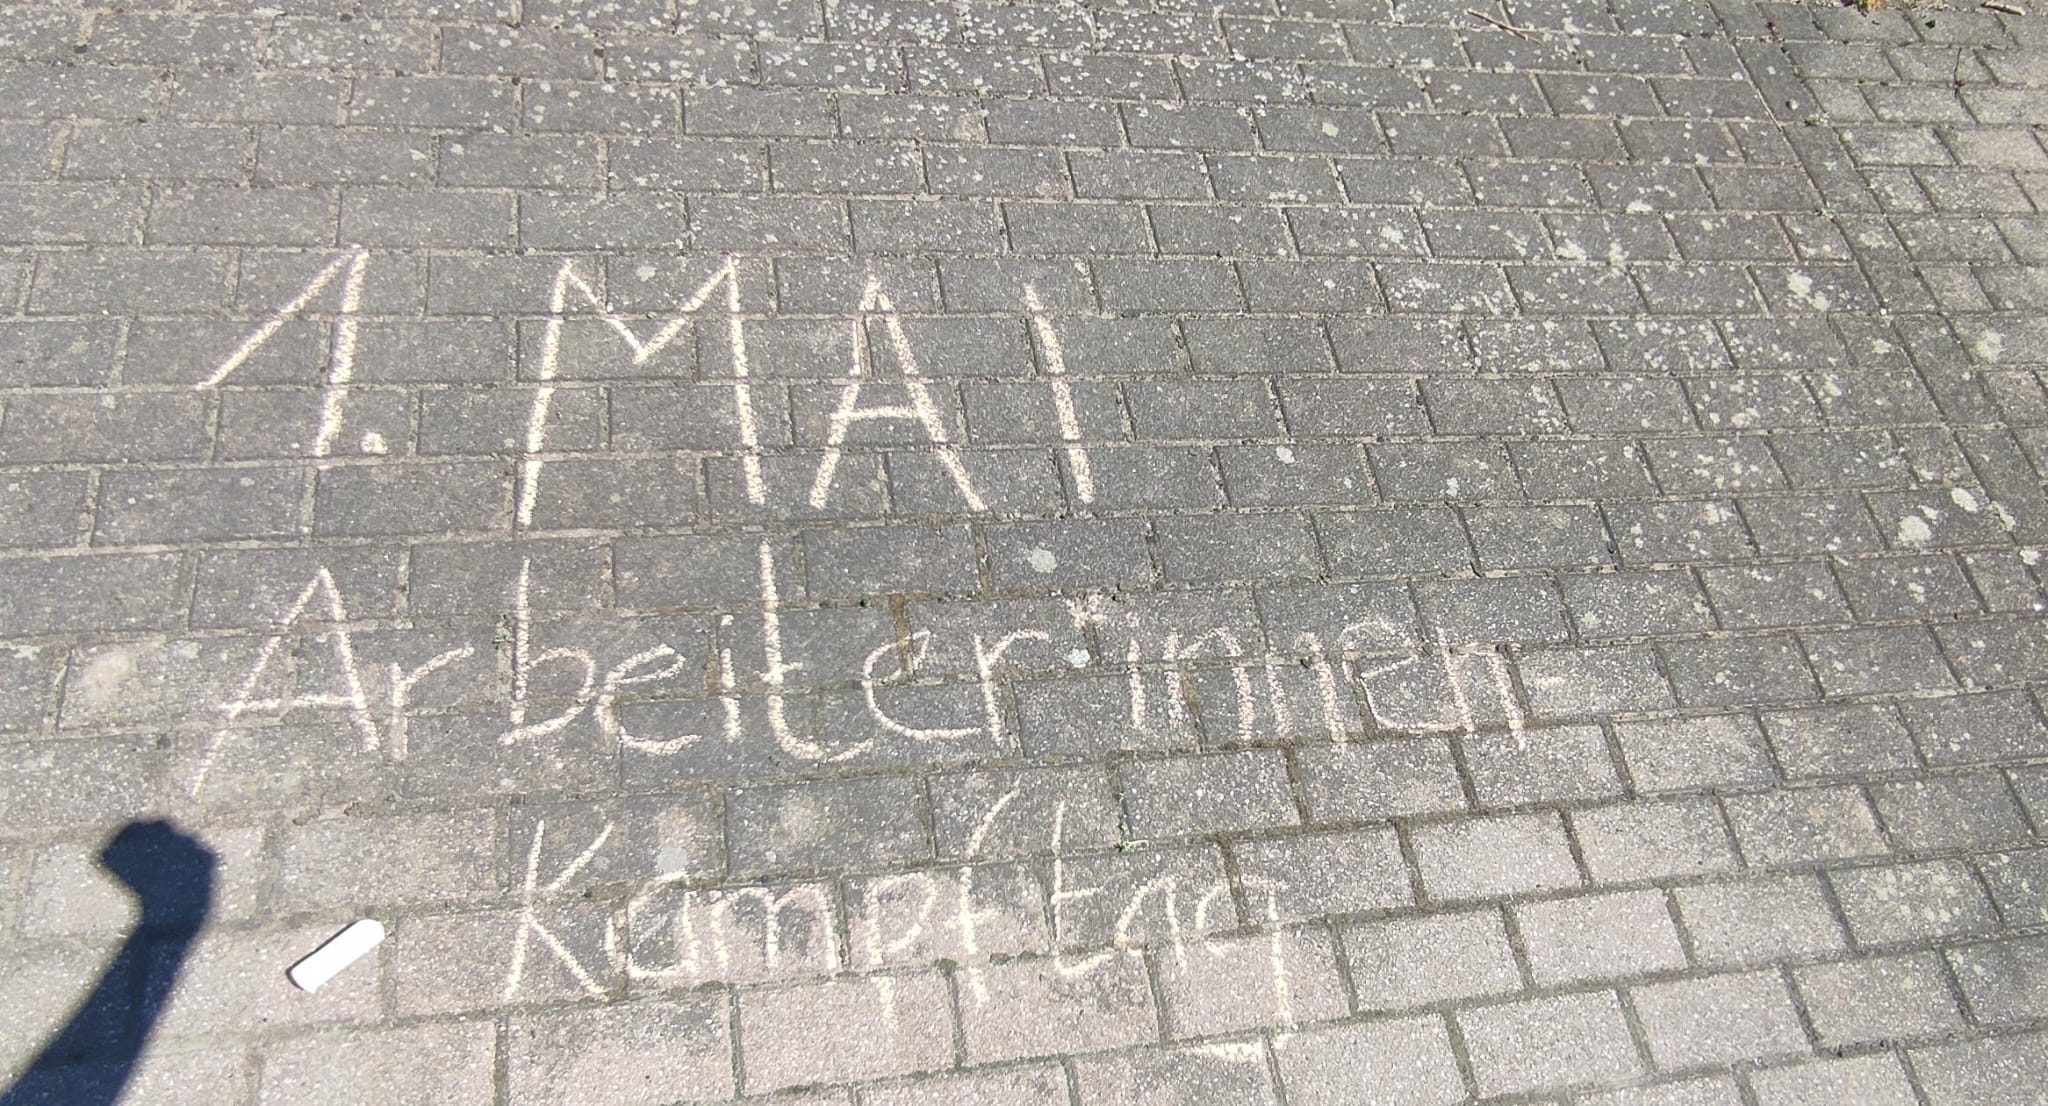 1. MAI
Arbeiter*innen-
Kampftag